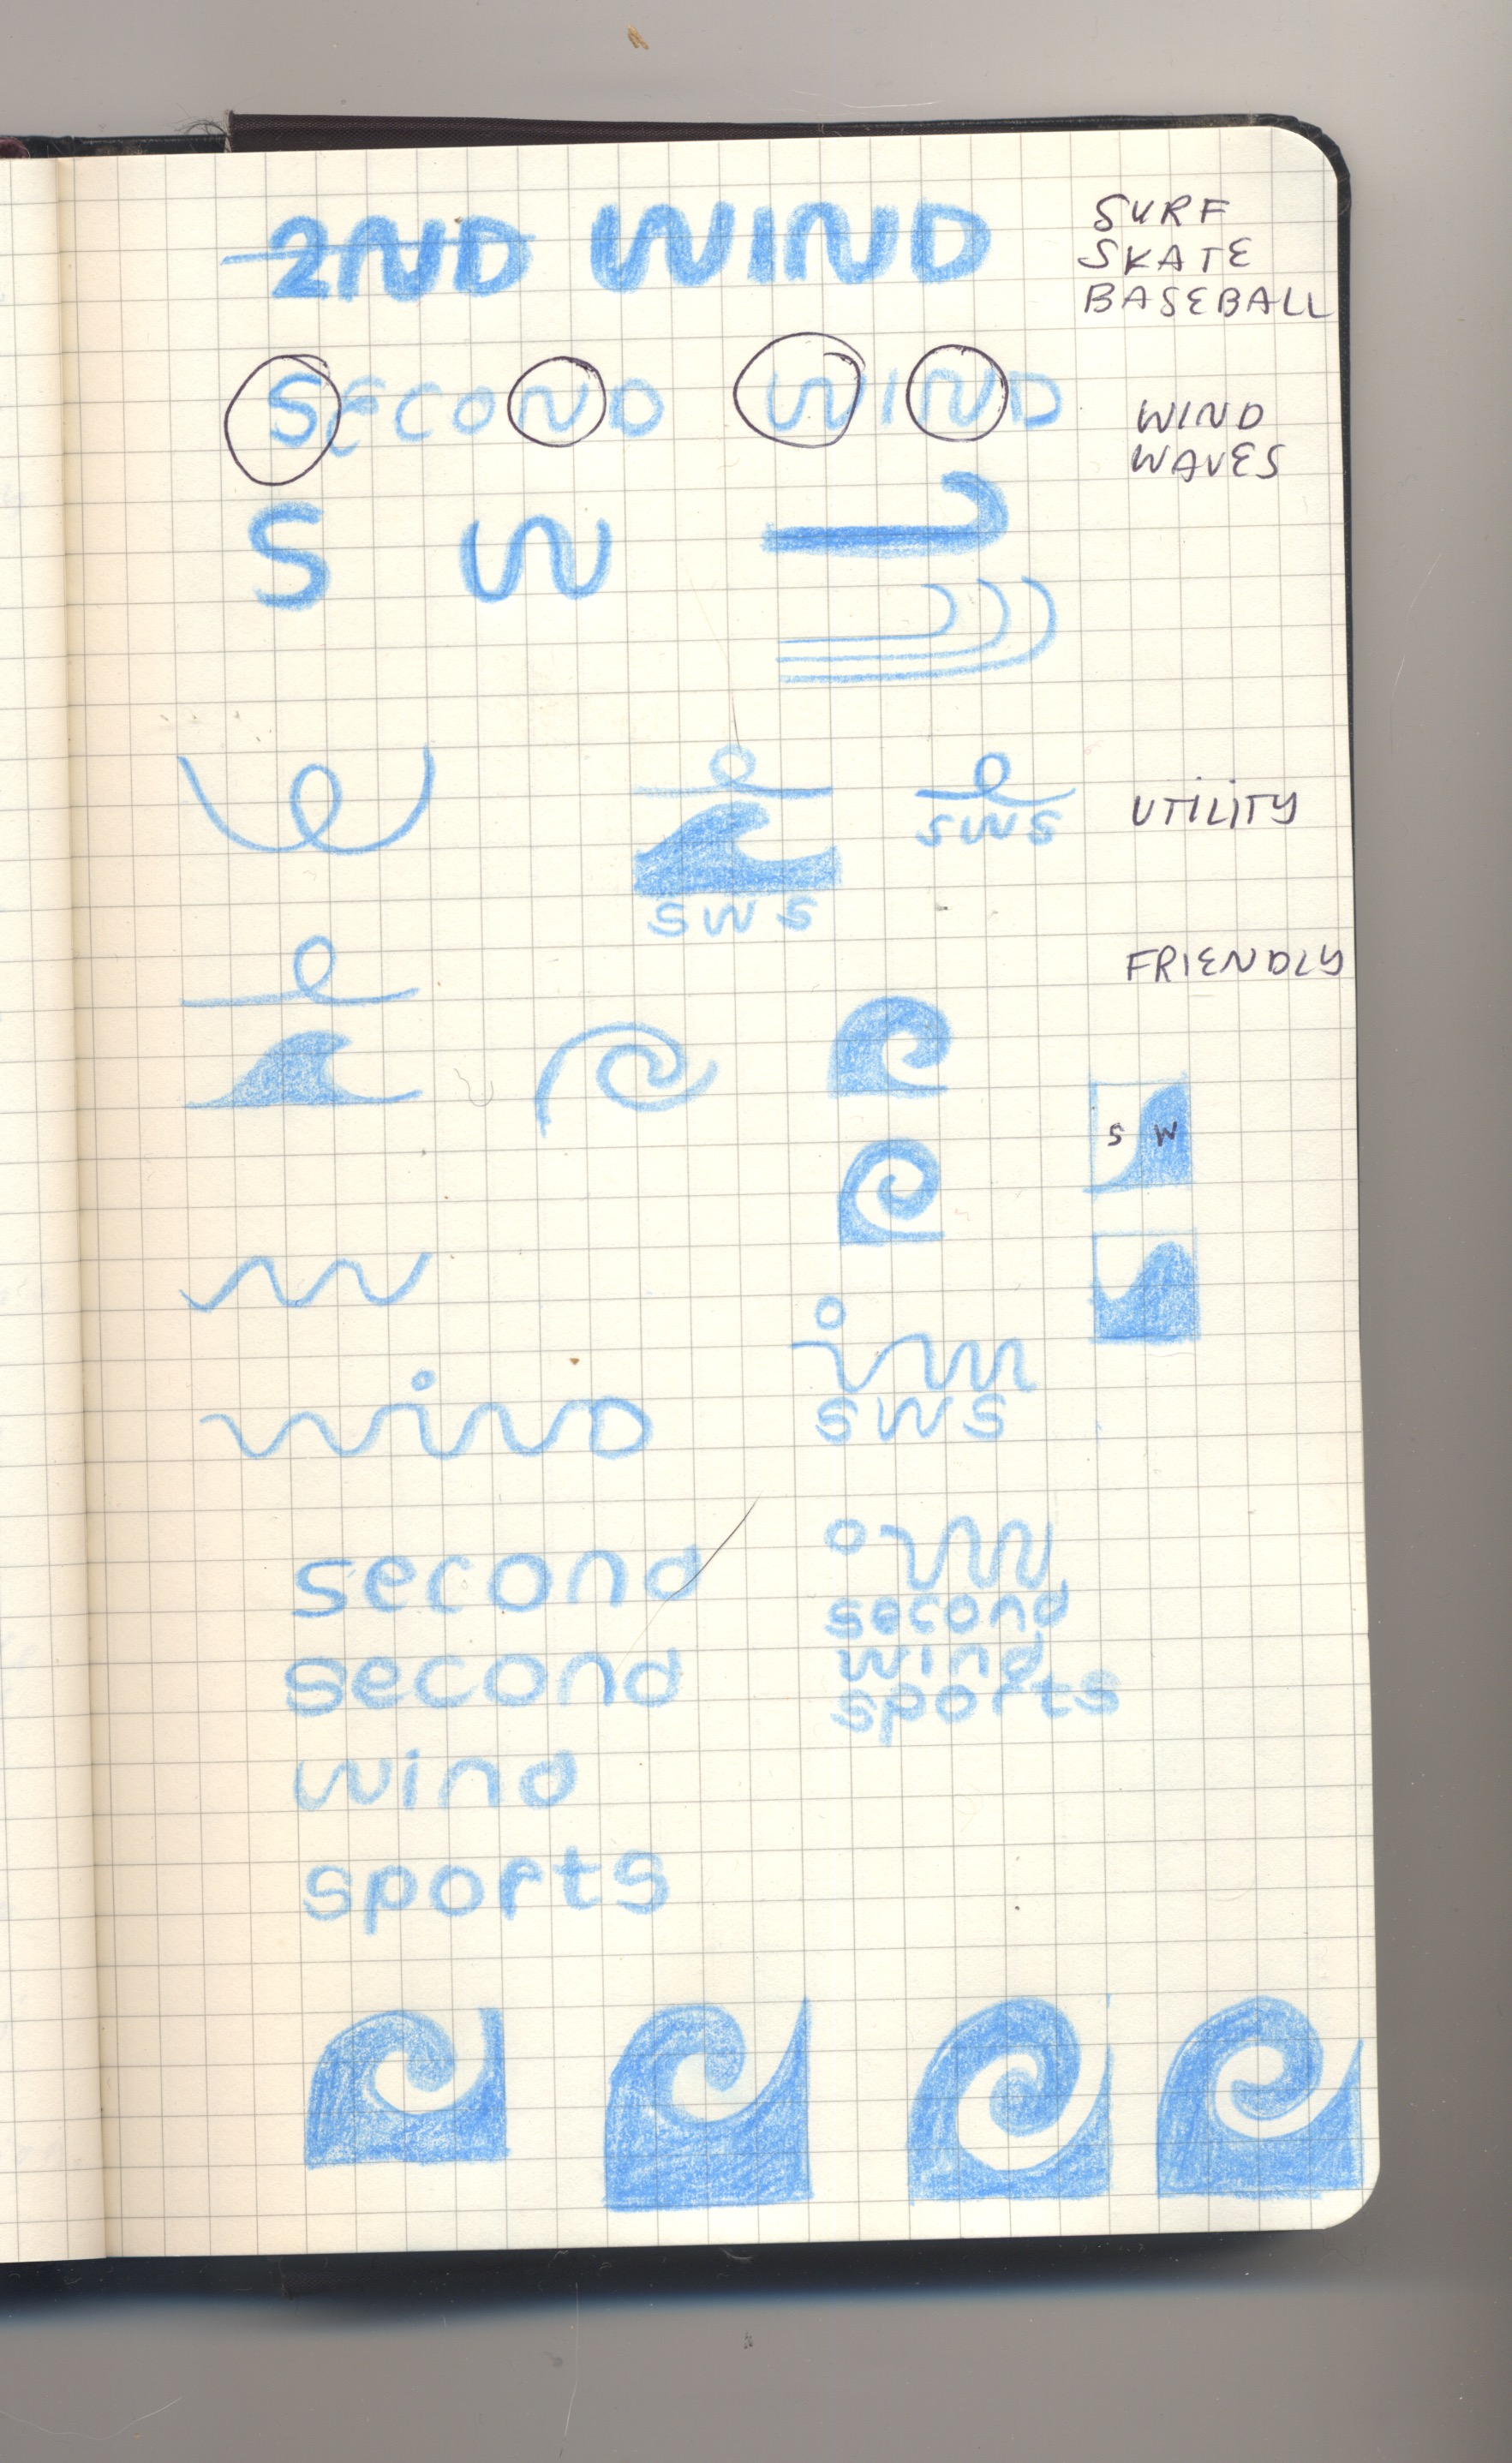 2ND WIND
SURF
SKATE
BASEBALL
SECOND WIND
WIND
WAVES
S W
UTILITY
SWS
SWS
FRIENDLY
S W
WIND
SWS
second
second
wind
sports
second
second
wind
sports